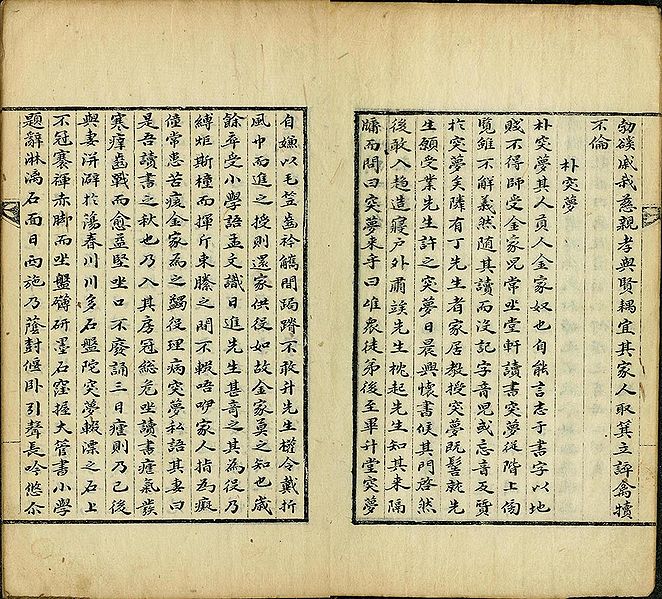 勃磎戚哉慈親孝與賢耦宜其家人取箕立誶禽犢
不倫
朴突夢
朴突夢其人貢人金家奴也自能言志于書字以地
賤不得師受金家兒常坐堂軒讀書突夢從階上傍
覽雖不解義然隨其讀而沒記字音兒或忘音反質
於突夢矣隣有丁先生者家居敎授突夢旣髻就先
生願受業先生許之突夢日晨興懷書候其門啓然
後敢入趨造寢戶外肅竢先生枕起先生知其来隔
牖而問曰突夢来乎曰唯衆徒弟後至畢升堂突夢
自嫌以毛笠齒衿觿間跼蹐不敢升先生權令戴折
風巾而進之授則還家供役如故金家莫之知也歲
餘卒受小學語孟文識日進先生甚奇之其為役乃
縛炬斯橦而揮斤束縢之間不輟唔咿家人指為癡
僮常患苦痎金家為之蠲役理病突夢私語其妻曰
是吾讀書之秋也乃入其房冠總危坐讀書瘧氣發
寒痒齒戰而愈益堅坐口不廢誦三日瘧則乃已後
與妻洴澼於蕩春川川多石盤陀突夢輙漂之石上
不冠褰褌赤脚而坐盤礴研墨石窪握大管書小學
題辭淋漓石面日雨施乃蔭封偃卧引聲長吟悠尒